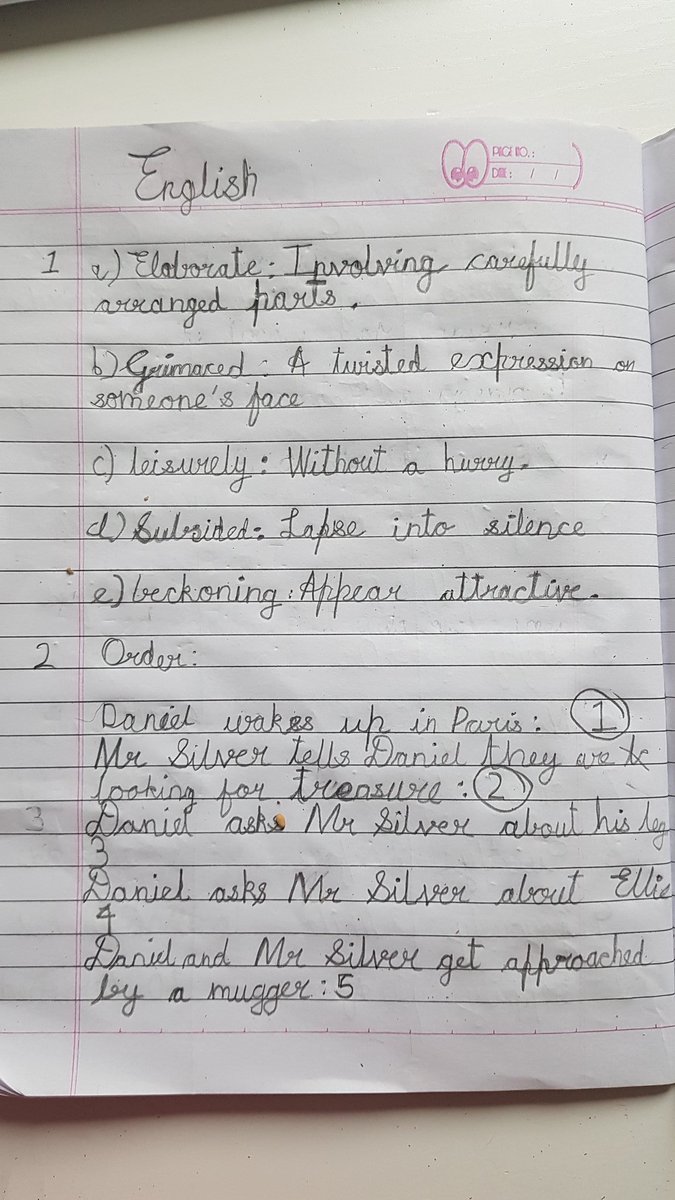 English
PAGE NO.:
DATE: / /
1 a) Elaborate: Involving carefully
arranged parts.
b) Grimaced: A twisted expression on
someone's face
c) leisurely: Without a hurry.
d) Subsided: Lapse into silence
e) beckoning: Appear attractive.
2 Order:
Daniel wakes up in Paris: 1
Mr Silver tells Daniel they are
looking for treasure: 2
3 Daniel asks Mr Silver about his leg
3
Daniel asks Mr Silver about Ellie
4
Daniel and Mr Silver get approached
by a mugger: 5